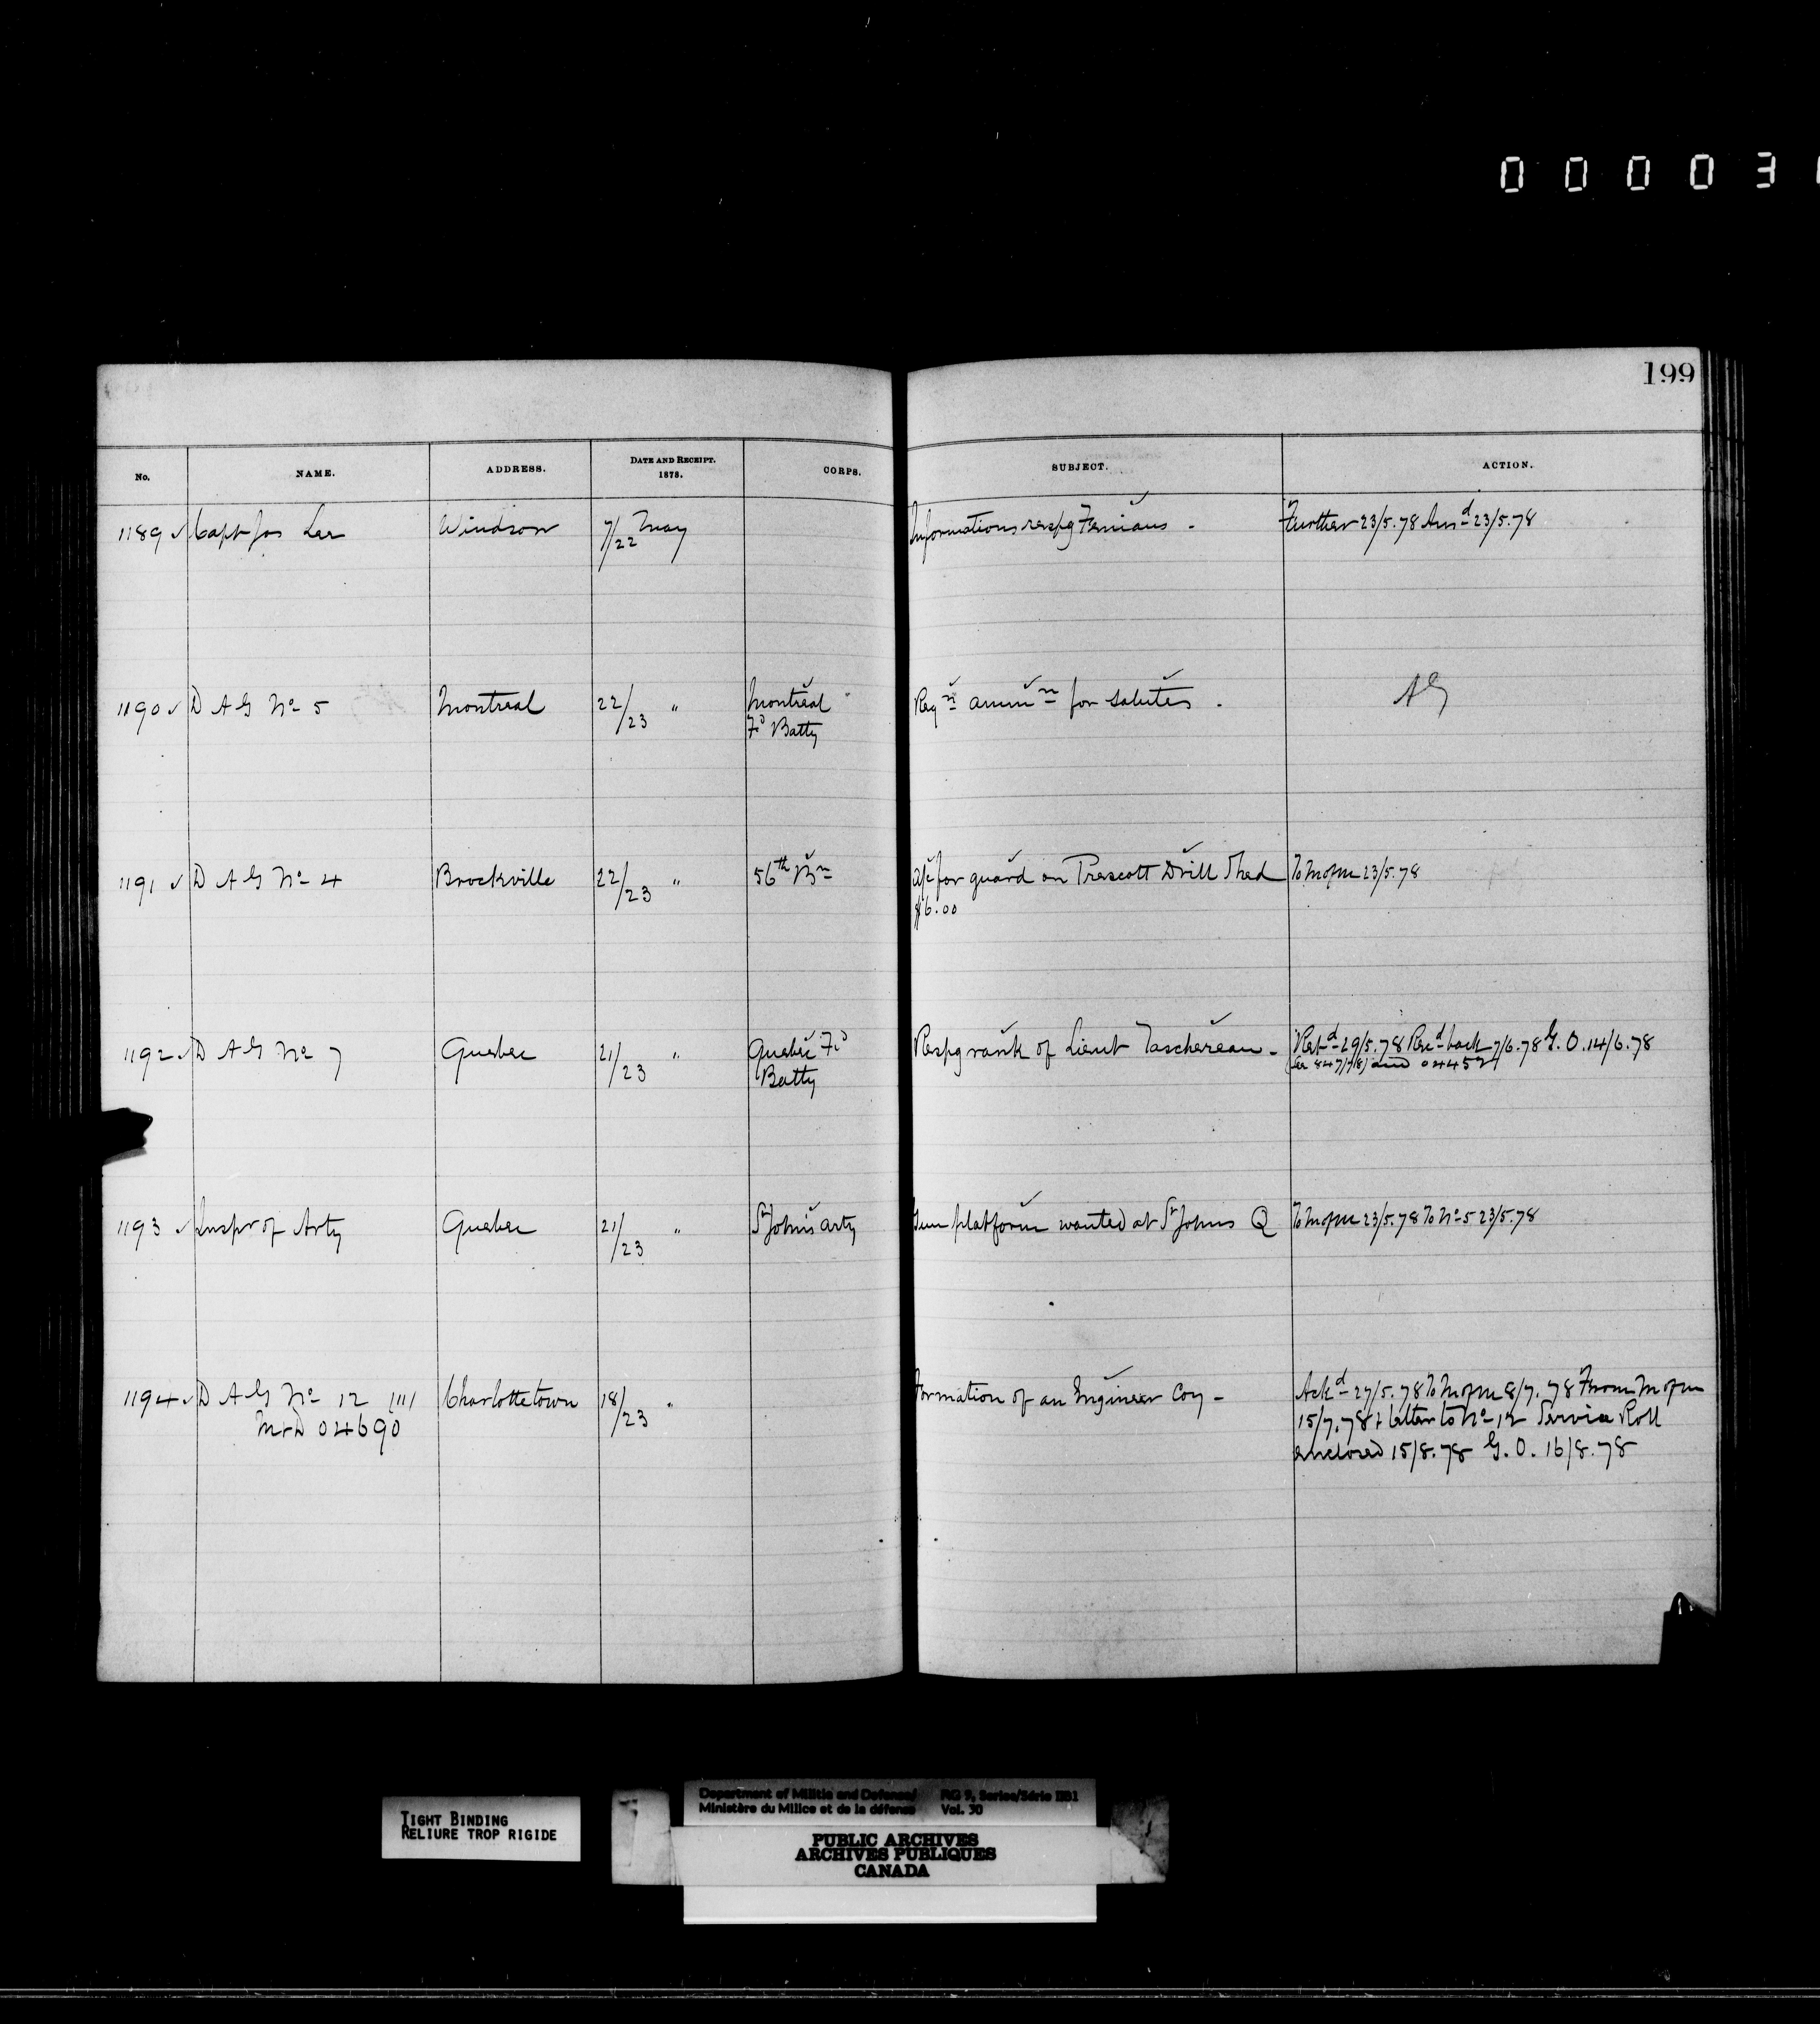 0 0 0 0 3
199
No. NAME. ADDRESS. DATE AND RECEIPT. 1878. CORPS. SUBJECT. ACTION.
1189 ✓ Capt Jas Lee Windsor 7/22 May Informations respg Fenians - Further 23/5.78 Ansd 23/5.78
1190 ✓ D A G No 5 Montreal 22/23 " Montreal Reqn ammn for salutes . AG
Fd Batty
1191 ✓ D A G No 4 Brockville 22/23 " 56th Bn a/c for guard on Prescott Drill Shed To M of M 23/5.78
$6.00
1192 ✓ D A G No 7 Quebec 21/23 " Quebec Fd Respg rank of Lieut Taschereau - Retd 29/5.78 Recd back 7/6.78 G.O. 14/6.78
Batty and 04452
1193 ✓ Inspr of Arty Quebec 21/23 " St John's Arty Gun platform wanted at St Johns Q To M of M 23/5.78 To No 5 23/5.78
1194 ✓ D A G No 12 Charlottetown 18/23 " Formation of an Engineer Coy - Ackd 27/5.78 To M of M 8/7.78 From M of M
M+D 04690 15/7.78 + letter to No 12 Service Roll
enclosed 15/8.78 G.O. 16/8.78
TIGHT BINDING
RELIURE TROP RIGIDE
Department of Militia and Defense/ RG 9, Series/Série IIB1
Ministère du Milice et de la défense Vol. 30
PUBLIC ARCHIVES
ARCHIVES PUBLIQUES
CANADA